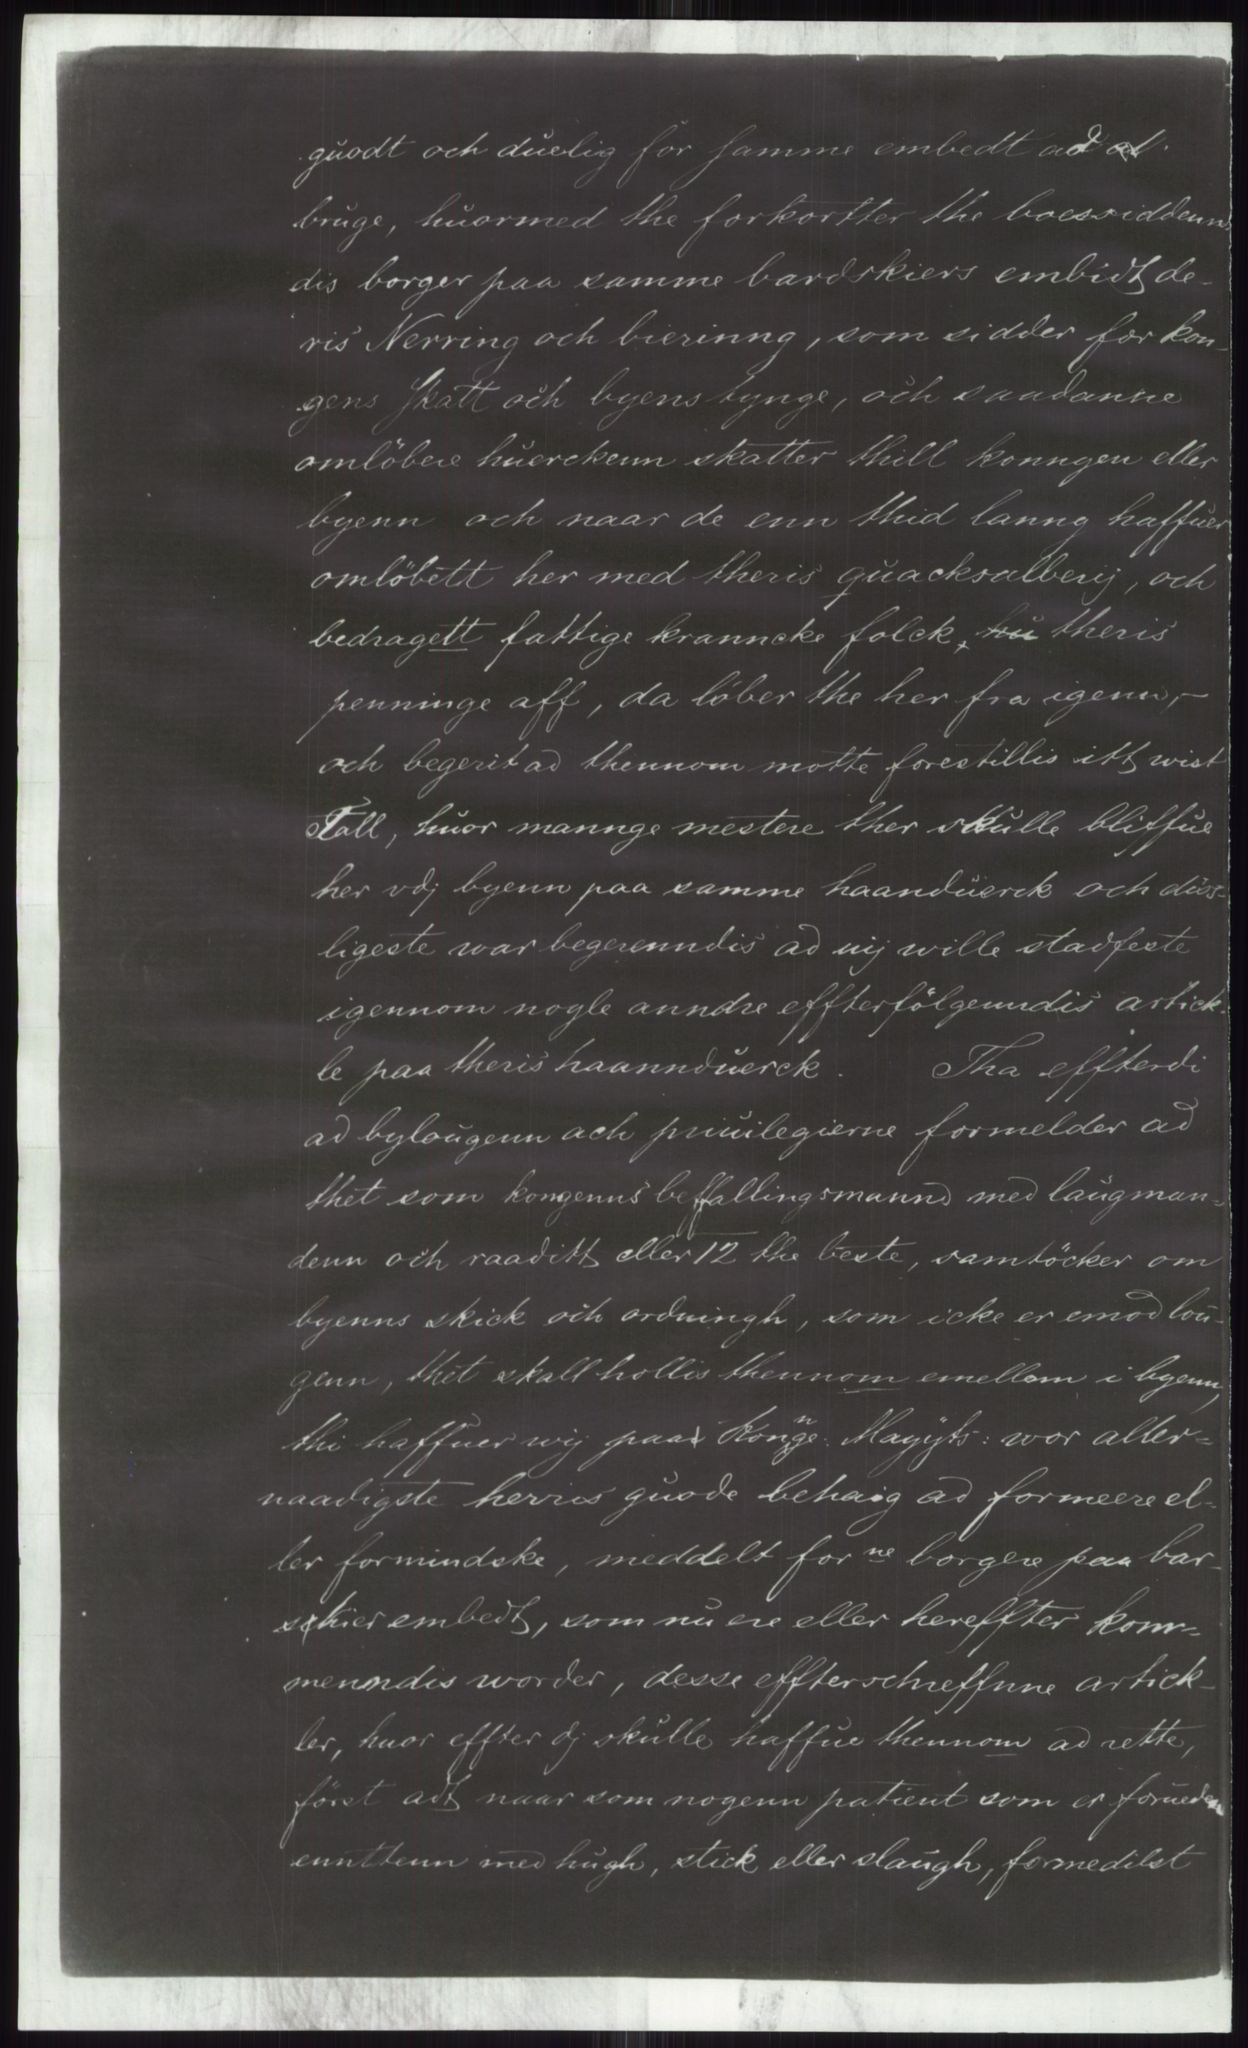 guodt och duelig for samme embedt ad
bruge, huormed the forkortter the boessiddenn
dis borger paa samme bardskiers embidt de-
ris Nerring och bierinng, som sidder for kon-
gens skatt och byens tynge, och saadanne
omlöbere huerckenn skatter thill konngen eller
byenn och naar de enn thid lanng haffuer
omlöbett her med theris quacksalberij, och
bedragett fattige kranncke folck, theris
penninge aff, da löber the her fra igenn,-
och begerit ad thennom motte forestillis itt wist
Tall, huor mannge mestere ther skulle bliffue
her vdj byenn paa samme haanduerck och diss-
ligeste war begerenndis ad wij wille stadfeste
igennom nogle anndre effterfölgenndis artick-
le paa theris haannduerck. Tha effterdi
ad bylougenn och priuilegierne formelder ad
thet som kongenns beffallingsmannd med laugman-
denn och raaditt eller 12 the beste, samtöcker om
byenns skick och ordningh, som icke er emod lou-
genn, thet skall hollis thennom emellom i byenn,
thi haffuer wij paa Konnge: Mayjts: wor aller-
naadigste herris guode behaig ad formeere el-
ler formindske, meddelt forne borgere paa bar-
skier embedt, som nu ere eller hereffter kom-
menndis worder, desse effterschreffnne artick-
ler, huor effter dj skulle haffue thennom ad rette,
först adt naar som nogenn patient som er forueden
ennttenn med hugh, stick eller slaugh, formedilst